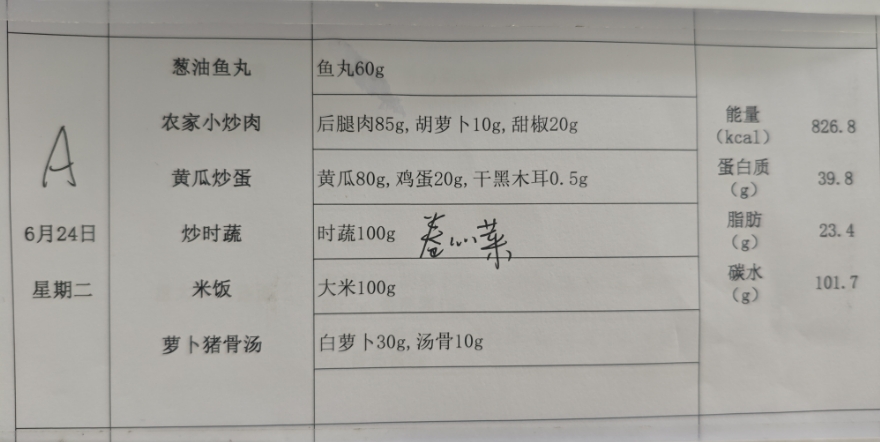 A
6月24日
星期二
葱油鱼丸
鱼丸60g
农家小炒肉
后腿肉85g,胡萝卜10g,甜椒20g
黄瓜炒蛋
黄瓜80g,鸡蛋20g,干黑木耳0.5g
炒时蔬
时蔬100g 卷心菜
米饭
大米100g
萝卜猪骨汤
白萝卜30g,汤骨10g
能量
(kcal)
826.8
蛋白质
(g)
39.8
脂肪
(g)
23.4
碳水
(g)
101.7